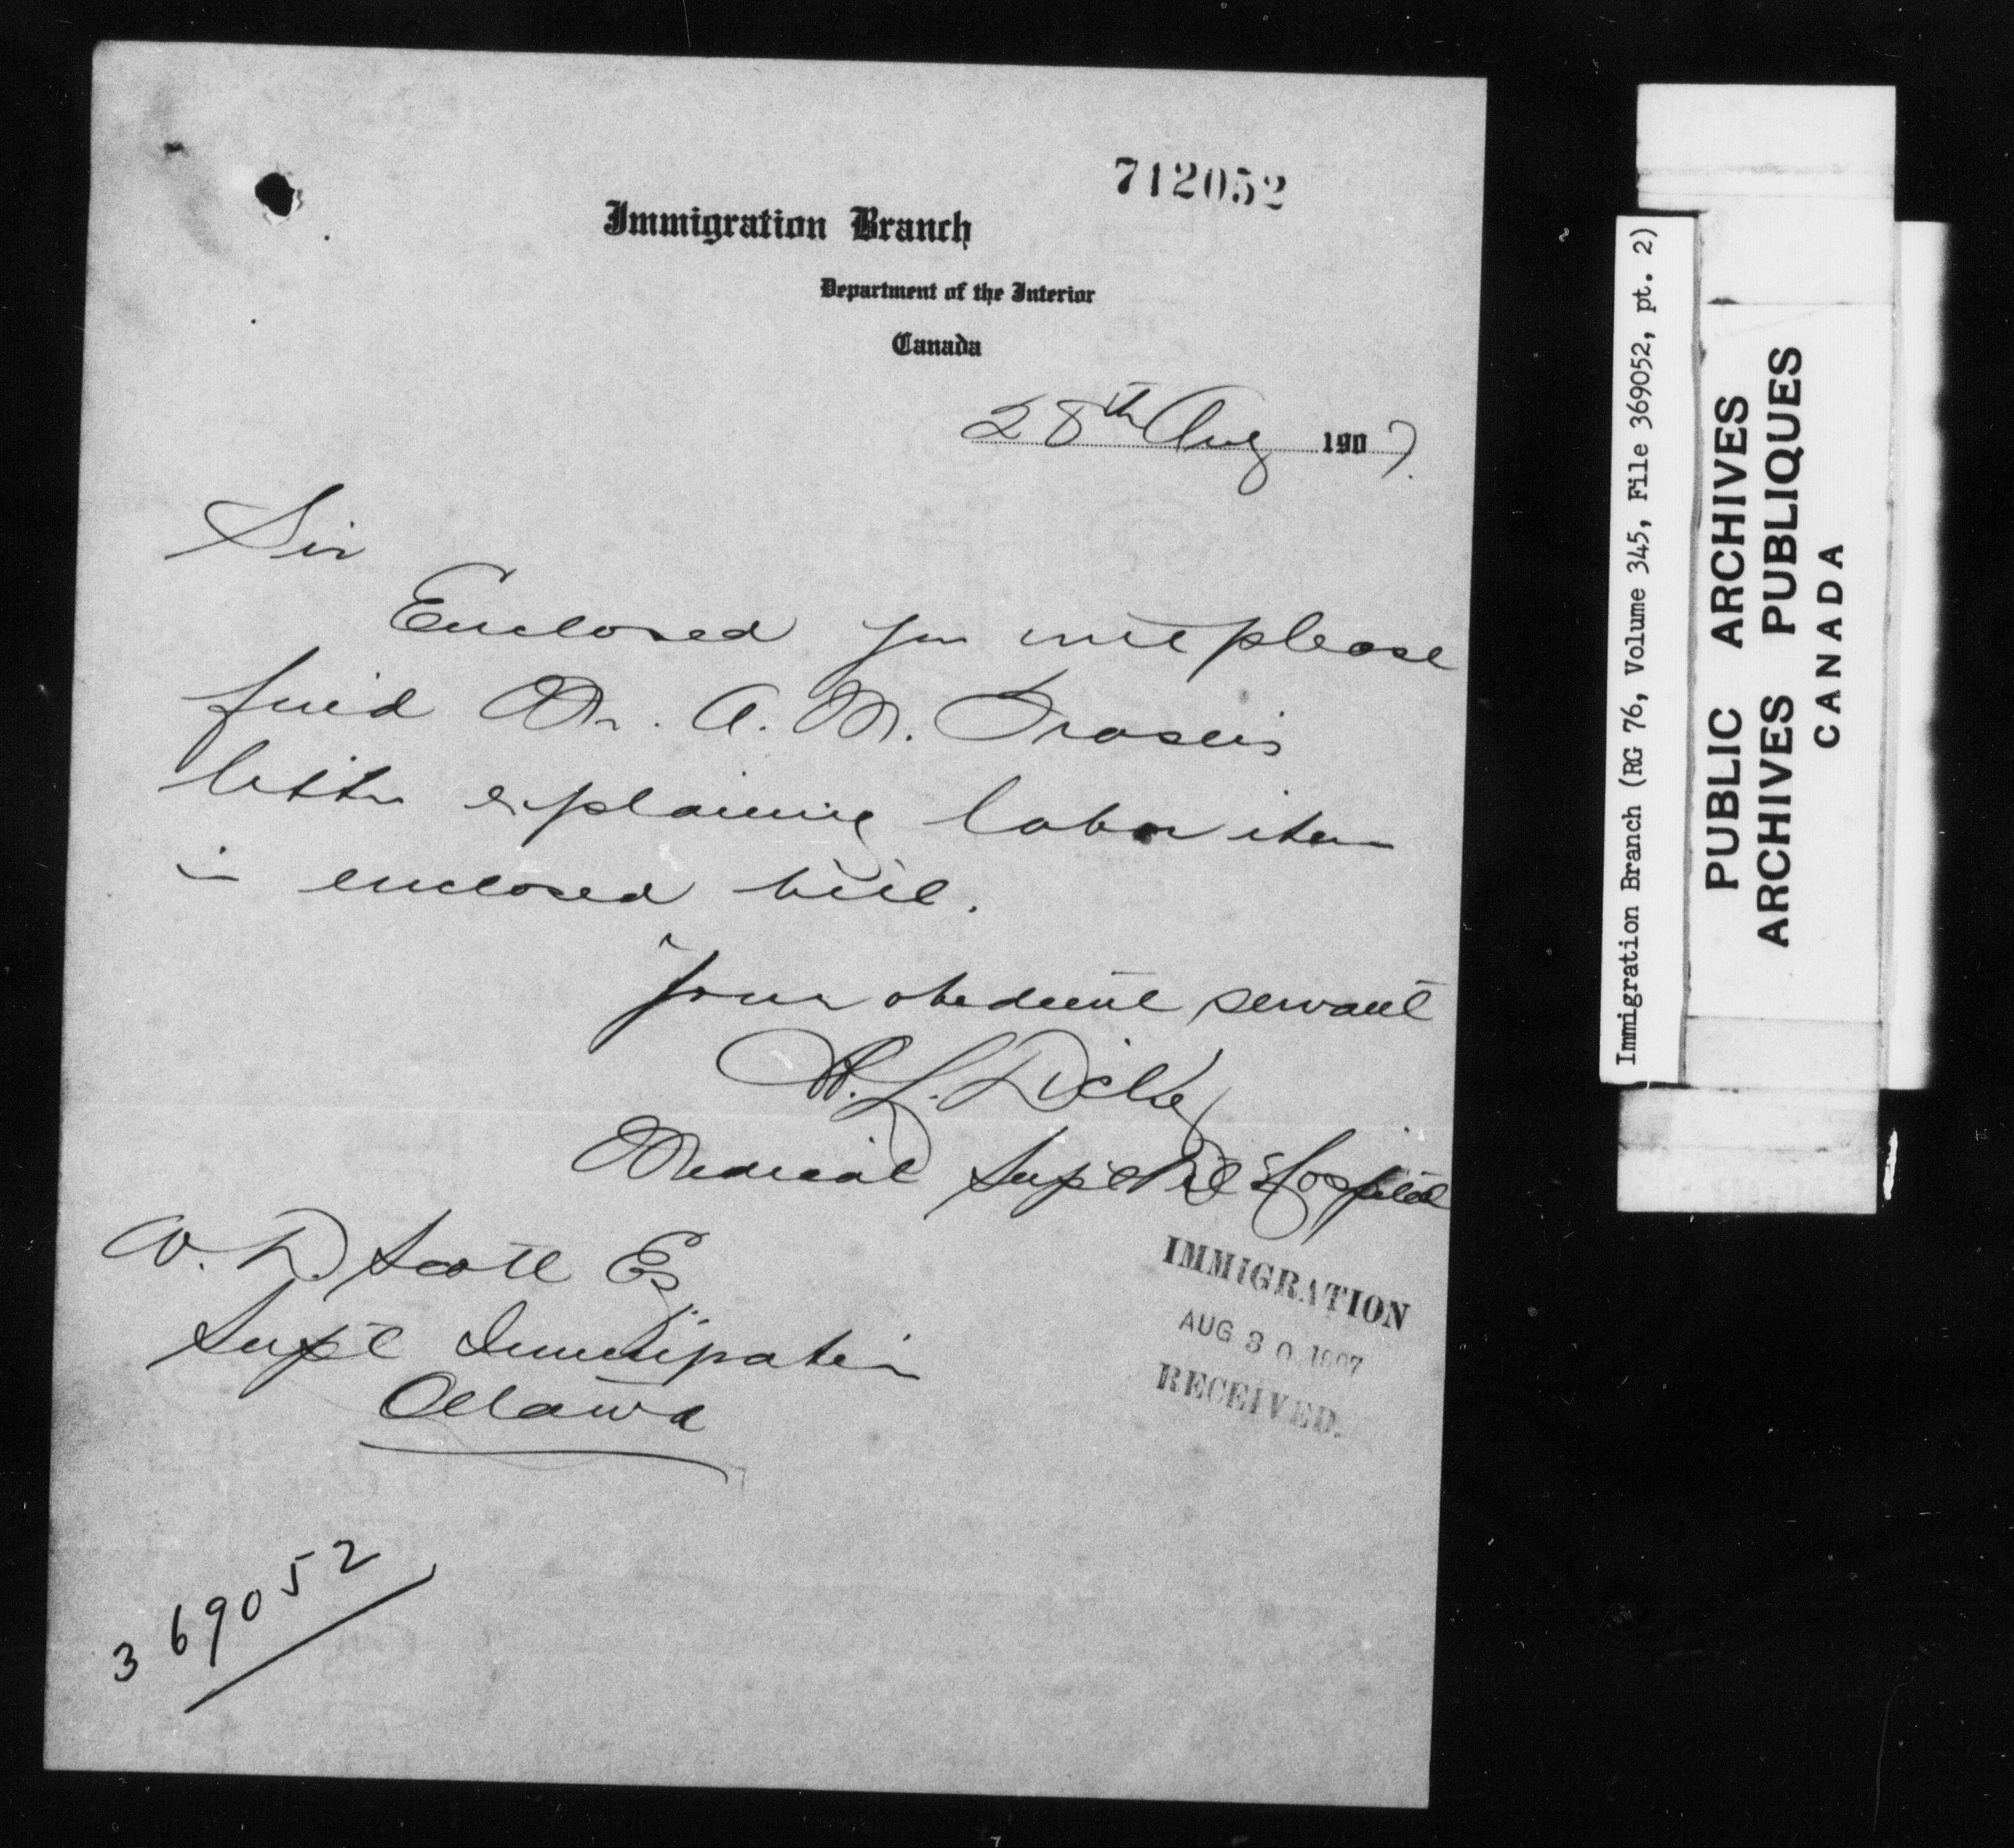 712052
Immigration Branch
Department of the Interior
Canada
28th Aug 1907.
Sir
Enclosed you will please
find Mr. A. M. Frasers
letter explaining labor item
in enclosed bill.
Your obedient servant
W. L. Dickey
Medical Supt Det Hospital
W. D. Scott Esq.
Supt Immigration
Ottawa
IMMIGRATION
AUG 30 1907
RECEIVED.
369052
Immigration Branch (RG 76, Volume 345, File 369052, pt. 2)
PUBLIC ARCHIVES
ARCHIVES PUBLIQUES
CANADA